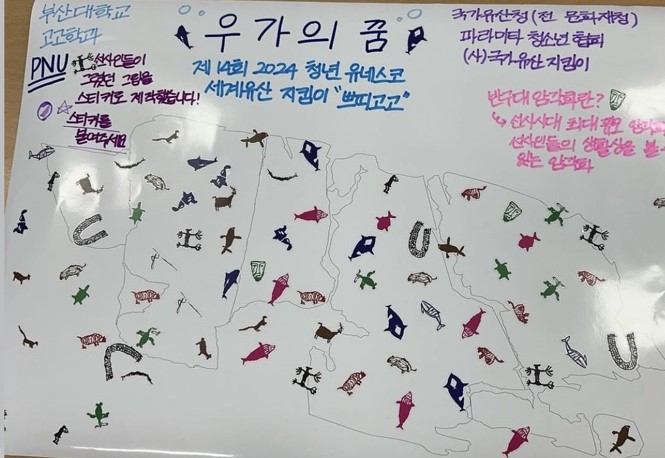 부산대학교
고고학과
PNU
선사인들이
그렸던 그림을
스티커로 제작했습니다!
스티커를
붙여주세요
우가의 꿈
제 14회 2024 청년 유네스코
세계유산 지킴이 "쁘띠고고"
국가유산청(전 문화재청)
파라미타 청소년 협회
(사)국가유산 지킴이
반구대 암각화란?
↳ 선사시대 최대 규모 암각화
선사인들의 생활상을 볼 수
있는 암각화